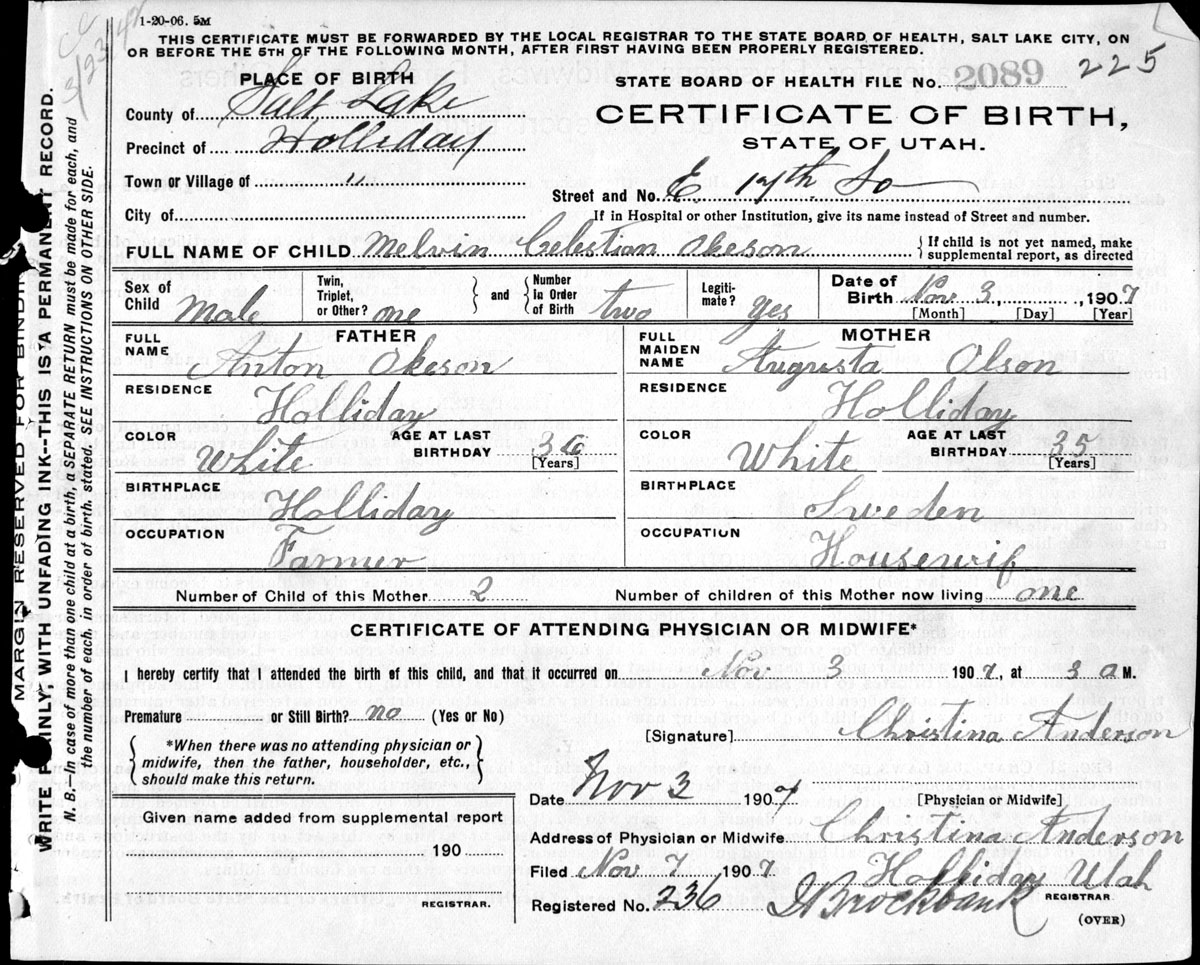 1-20-06. 5M
THIS CERTIFICATE MUST BE FORWARDED BY THE LOCAL REGISTRAR TO THE STATE BOARD OF HEALTH, SALT LAKE CITY, ON
OR BEFORE THE 5TH OF THE FOLLOWING MONTH, AFTER FIRST HAVING BEEN PROPERLY REGISTERED.
PLACE OF BIRTH
STATE BOARD OF HEALTH FILE No. 2089 225
County of Salt Lake
CERTIFICATE OF BIRTH,
Precinct of Holliday
STATE OF UTAH.
Town or Village of "
Street and No. E. 17th So
City of
If in Hospital or other Institution, give its name instead of Street and number.
FULL NAME OF CHILD Melvin Celestian Okeson
If child is not yet named, make
supplemental report, as directed
Sex of Child Male
Twin, Triplet, or Other? one
and
Number In Order of Birth two
Legiti-mate? yes
Date of Birth Nov 3, 1907
[Month] [Day] [Year]
FATHER
FULL NAME Anton Okeson
RESIDENCE Holliday
COLOR White
AGE AT LAST BIRTHDAY 36
[Years]
BIRTHPLACE Holliday
OCCUPATION Farmer
MOTHER
FULL MAIDEN NAME Augusta Olson
RESIDENCE Holliday
COLOR White
AGE AT LAST BIRTHDAY 35
[Years]
BIRTHPLACE Sweden
OCCUPATION Housewif
Number of Child of this Mother 2
Number of children of this Mother now living one
CERTIFICATE OF ATTENDING PHYSICIAN OR MIDWIFE*
I hereby certify that I attended the birth of this child, and that it occurred on Nov 3 1907, at 3 a M.
Premature or Still Birth? no (Yes or No)
[Signature] Christina Anderson
*When there was no attending physician or
midwife, then the father, householder, etc.,
should make this return.
Date Nov 3 1907
[Physician or Midwife]
Given name added from supplemental report
190
REGISTRAR.
Address of Physician or Midwife Christina Anderson
Filed Nov 7 1907 Holliday Utah
Registered No. 236 Brockbank
REGISTRAR
(OVER)
MARGIN RESERVED FOR BINDIN
WRITE PLAINLY, WITH UNFADING INK--THIS IS A PERMANENT RECORD.
N. B.—In case of more than one child at a birth, a SEPARATE RETURN must be made for each, and
the number of each, in order of birth, stated. SEE INSTRUCTIONS ON OTHER SIDE.